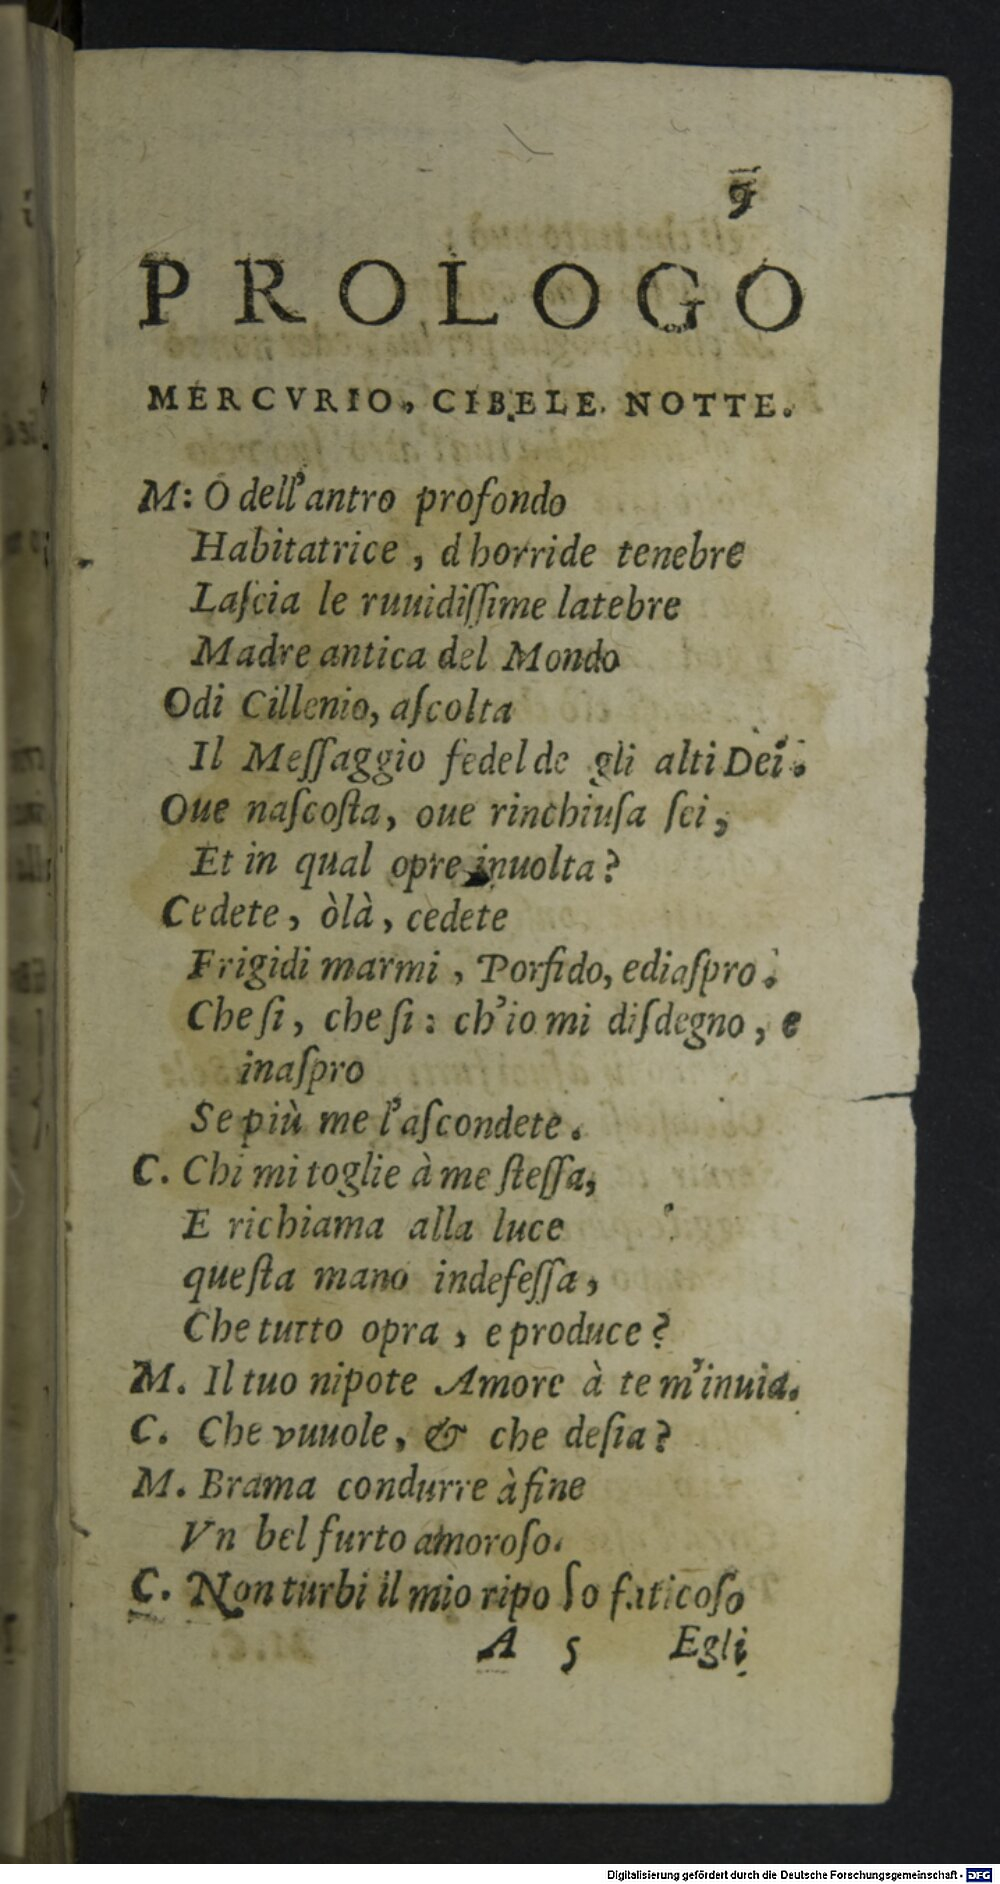 9
PROLOGO
MERCVRIO, CIBELE. NOTTE.
M: O dell'antro profondo
Habitatrice, d horride tenebre
Laſcia le ruuidiſſime latebre
Madre antica del Mondo
Odi Cillenio, aſcolta
Il Meſſaggio fedel de gli alti Dei.
Oue naſcoſta, oue rinchiuſa ſei,
Et in qual opre inuolta?
Cedete, òlà, cedete
Frigidi marmi, Porfido, ediaſpro.
Che ſi, che ſi: ch'io mi diſdegno, e
inaſpro
Se più me l'aſcondete.
C. Chi mi toglie à me ſteſſa,
E richiama alla luce
queſta mano indefeſſa,
Che tutto opra, e produce?
M. Il tuo nipote Amore à te m'inuia.
C. Che vuuole, & che deſia?
M. Brama condurre à fine
Vn bel furto amoroſo.
C. Non turbi il mio ripo ſo faticoſo
A 5 Egli
Digitalisierung gefördert durch die Deutsche Forschungsgemeinschaft - DFG